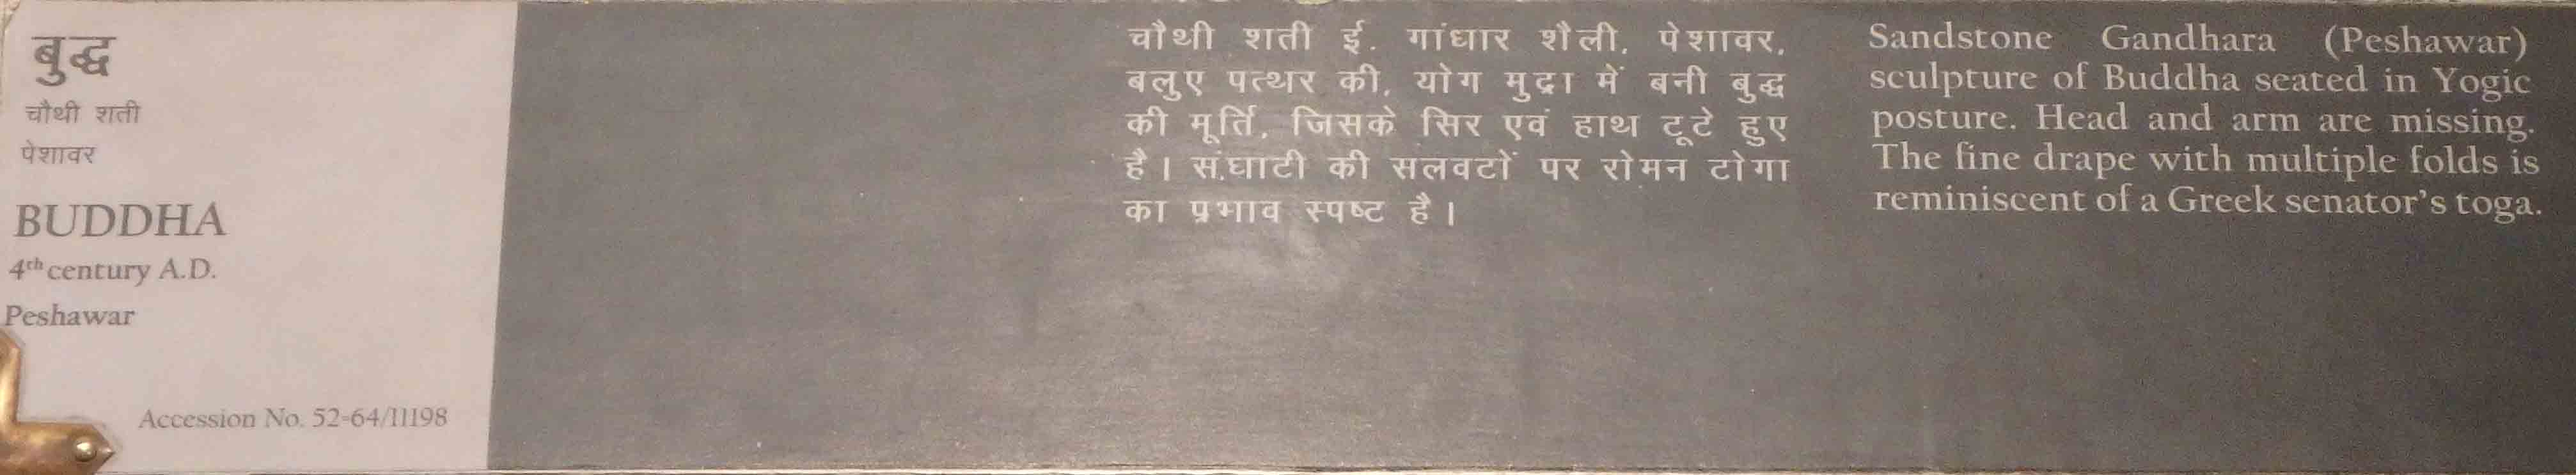 बुद्ध
चौथी शती
पेशावर
BUDDHA
4th century A.D.
Peshawar
Accession No. 52-64/11198
चौथी शती ई. गांधार शैली, पेशावर,
बलुए पत्थर की, योग मुद्रा में बनी बुद्ध
की मूर्ति, जिसके सिर एवं हाथ टूटे हुए
है। संघाटी की सलवटों पर रोमन टोगा
का प्रभाव स्पष्ट है।
Sandstone Gandhara (Peshawar)
sculpture of Buddha seated in Yogic
posture. Head and arm are missing.
The fine drape with multiple folds is
reminiscent of a Greek senator's toga.